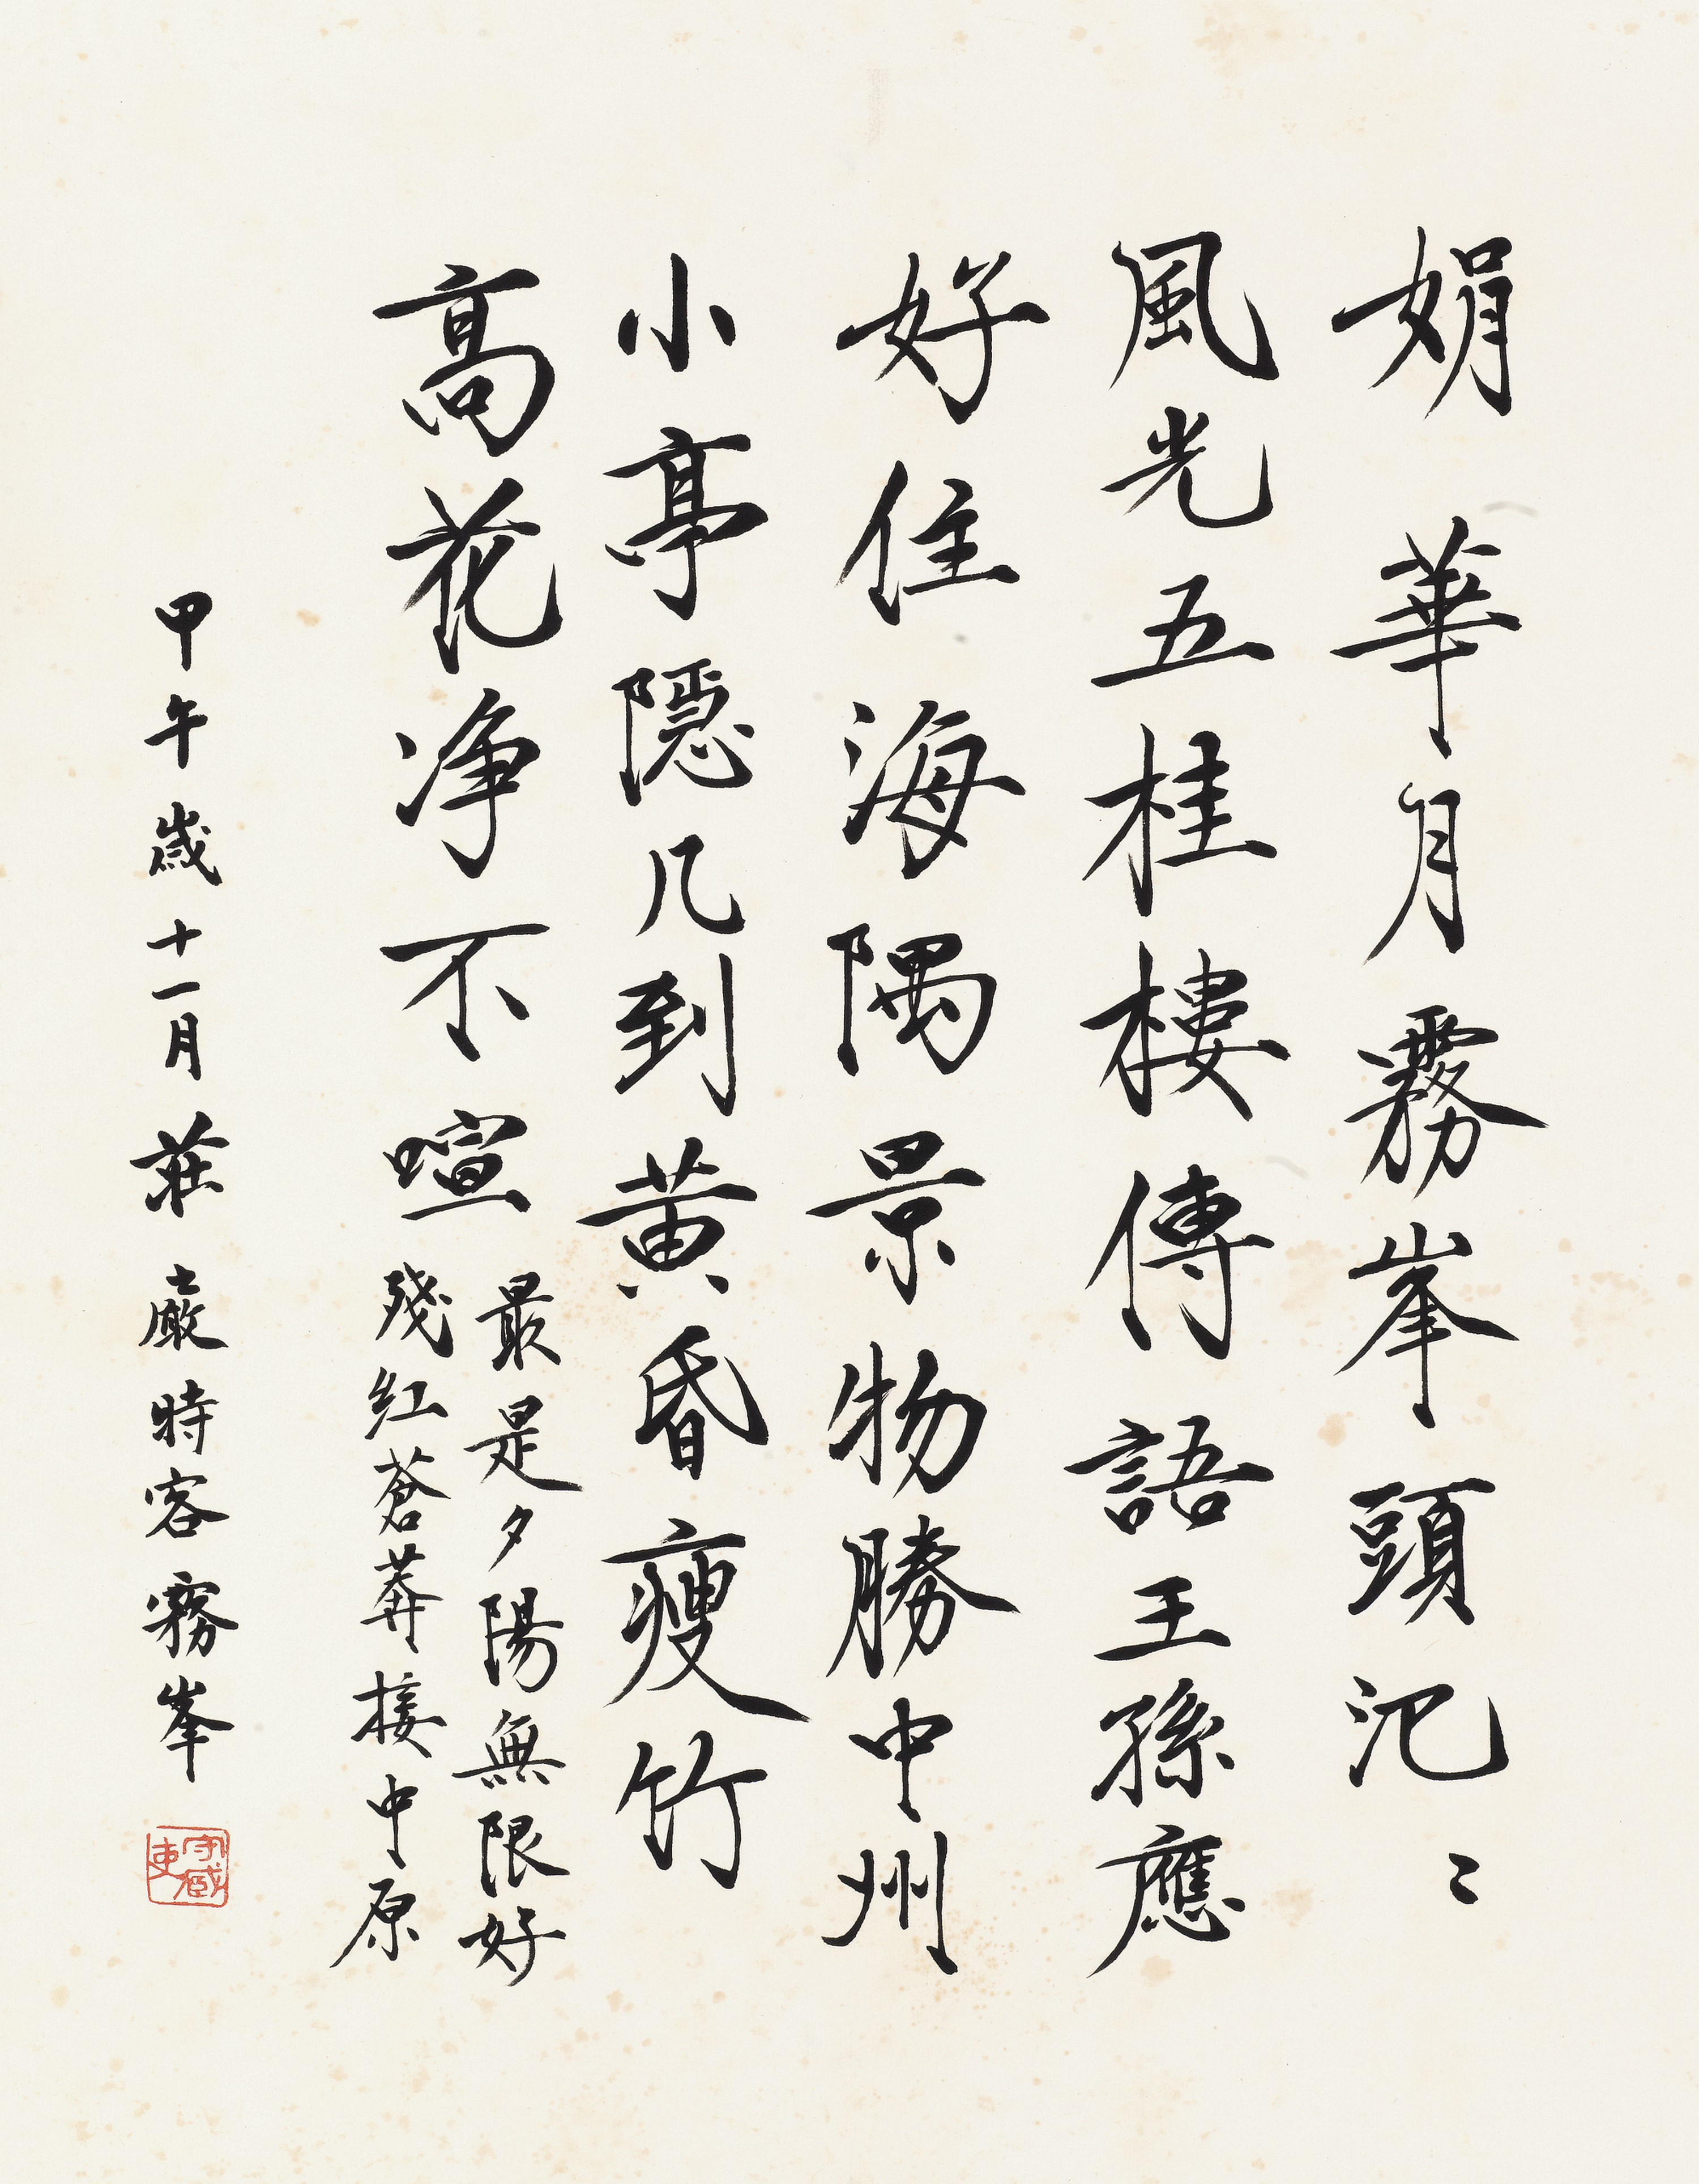 娟 華月霧峯頭汜〻
風光五桂樓傳語王孫應
好住海隅景物勝中州
小亭隱几到黃昏瘦竹
高花净不喧
最是夕陽無限好
殘紅蒼莽接中原
甲午歲十一月莊嚴時客霧峯
守藏吏